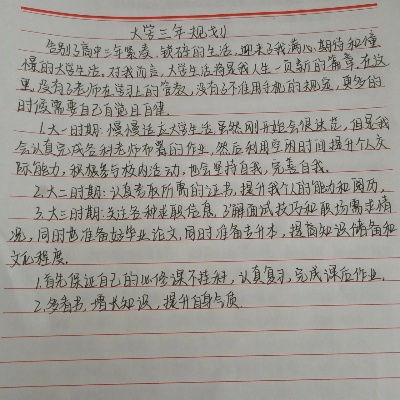 大学三年规划
告别了高中三年紧凑、琐碎的生活,迎来了我满心期待和憧
憬的大学生活,对我而言,大学生活将是我人生一页新的篇章,在这
里,没有了老师在学习上的管教,没有了不准用手机的规定,更多的
时候需要自己自觉且自律
1.大一时期:慢慢适应大学生活,虽然刚开始会很迷茫,但是我
会认真完成各科老师布置的作业,然后利用空闲时间提升个人交
际能力,积极参与校内活动,也会坚持自我,完善自我。
2.大二时期:认真考取所需的证书,提升我个人的能力和阅历,
3.大三时期:关注各种求职信息,了解面试技巧和职场需求情
况,同时也准备好毕业论文,同时准备专升本,提高知识储备和
文化程度。
1.首先保证自己的必修课不挂科,认真复习,完成课后作业,
2.多看书,增长知识,提升自身气质